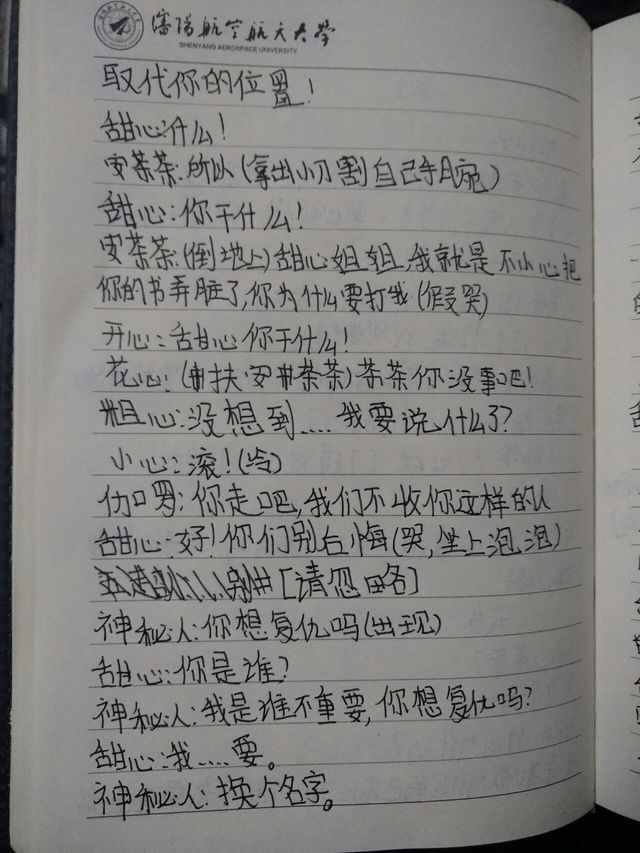 瀋陽航空航天大学
SHENYANG AEROSPACE UNIVERSITY
取代你的位置!
甜心:什么!
安茶茶:所以(拿出小刀割自己手腕)
甜心:你干什么!
安茶茶:(倒地上)甜心姐姐,我就是不小心把
你的书弄脏了,你为什么要打我(假哭)
开心:甜心你干什么!
花心:(扶安茶茶)茶茶你没事吧!
粗心:没想到....我要说什么了?
小心:滚!(冷)
伽罗:你走吧,我们不收你这样的人
甜心:好!你们别后悔(哭,坐上泡泡)
[请忽略]
神秘人:你想复仇吗(出现)
甜心:你是谁?
神秘人:我是谁不重要,你想复仇吗?
甜心:我....要。
神秘人:换个名字。